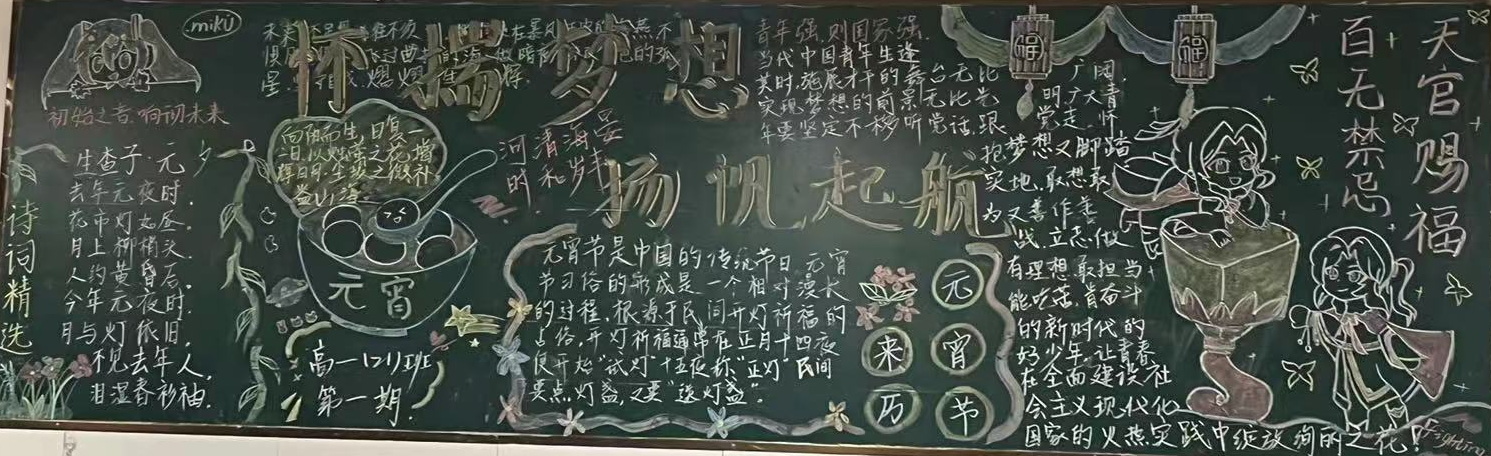 miku
初始之音,响彻未来
诗词精选
生查子·元夕
去年元夜时,
花市灯如昼。
月上柳梢头,
人约黄昏后。
今年元夜时,
月与灯依旧。
不见去年人,
泪湿春衫袖。
怀揣梦想
扬帆起航
河清海晏
时和岁丰
元宵
高一(21)班
第一期
元宵节是中国的传统节日,元宵
节习俗的形成是一个相对漫长
的过程,根源于民间开灯祈福的
古俗,开灯祈福通常在正月十四夜
便开始“试灯”十五夜称“正灯”民间
要点灯盏,又要“送灯盏”。
元宵节
来历
青年强,则国家强.
当代中国青年生逢
其时,施展才干的舞台无比广阔,
实现梦想的前景无比光明,广大青
年要坚定不移听党话、跟党走,怀
抱梦想又脚踏
实地,敢想敢
为又善作善
成,立志做
有理想、敢担当
能吃苦、肯奋斗
的新时代的
好少年,让青春
在全面建设社
会主义现代化
国家的火热实践中绽放绚丽之花!
福
福
天官赐福
百无禁忌
Fighting